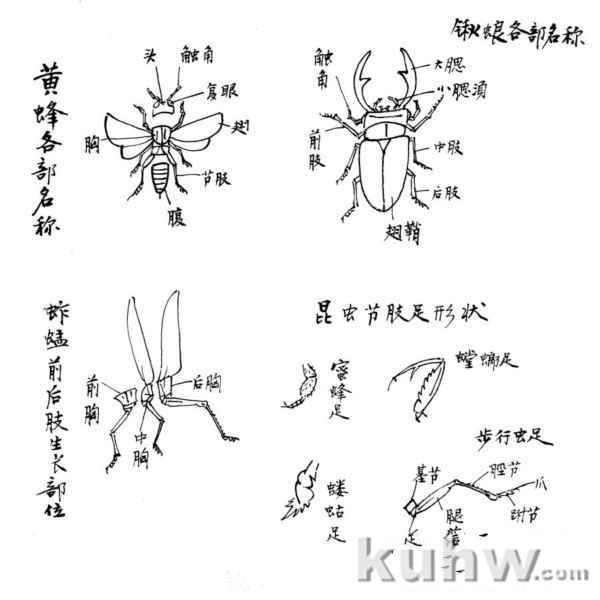 黄蜂各部名称
头
触角
复眼
胸
翅
节肢
腹
锹螂各部名称
触角
大腮
小腮须
前肢
中肢
后肢
翅鞘
蚱蜢前后肢生长部位
前胸
后胸
中胸
昆虫节肢足形状
蜜蜂足
螳螂足
蝼蛄足
步行虫足
基节
胫节
爪
腿
跗节
足
kuhw.com